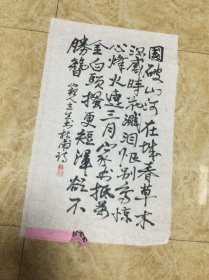 國破山河在城春草木
深感時花濺淚恨別鳥驚
心烽火連三月家書抵萬
金白頭搔更短渾欲不
勝簪